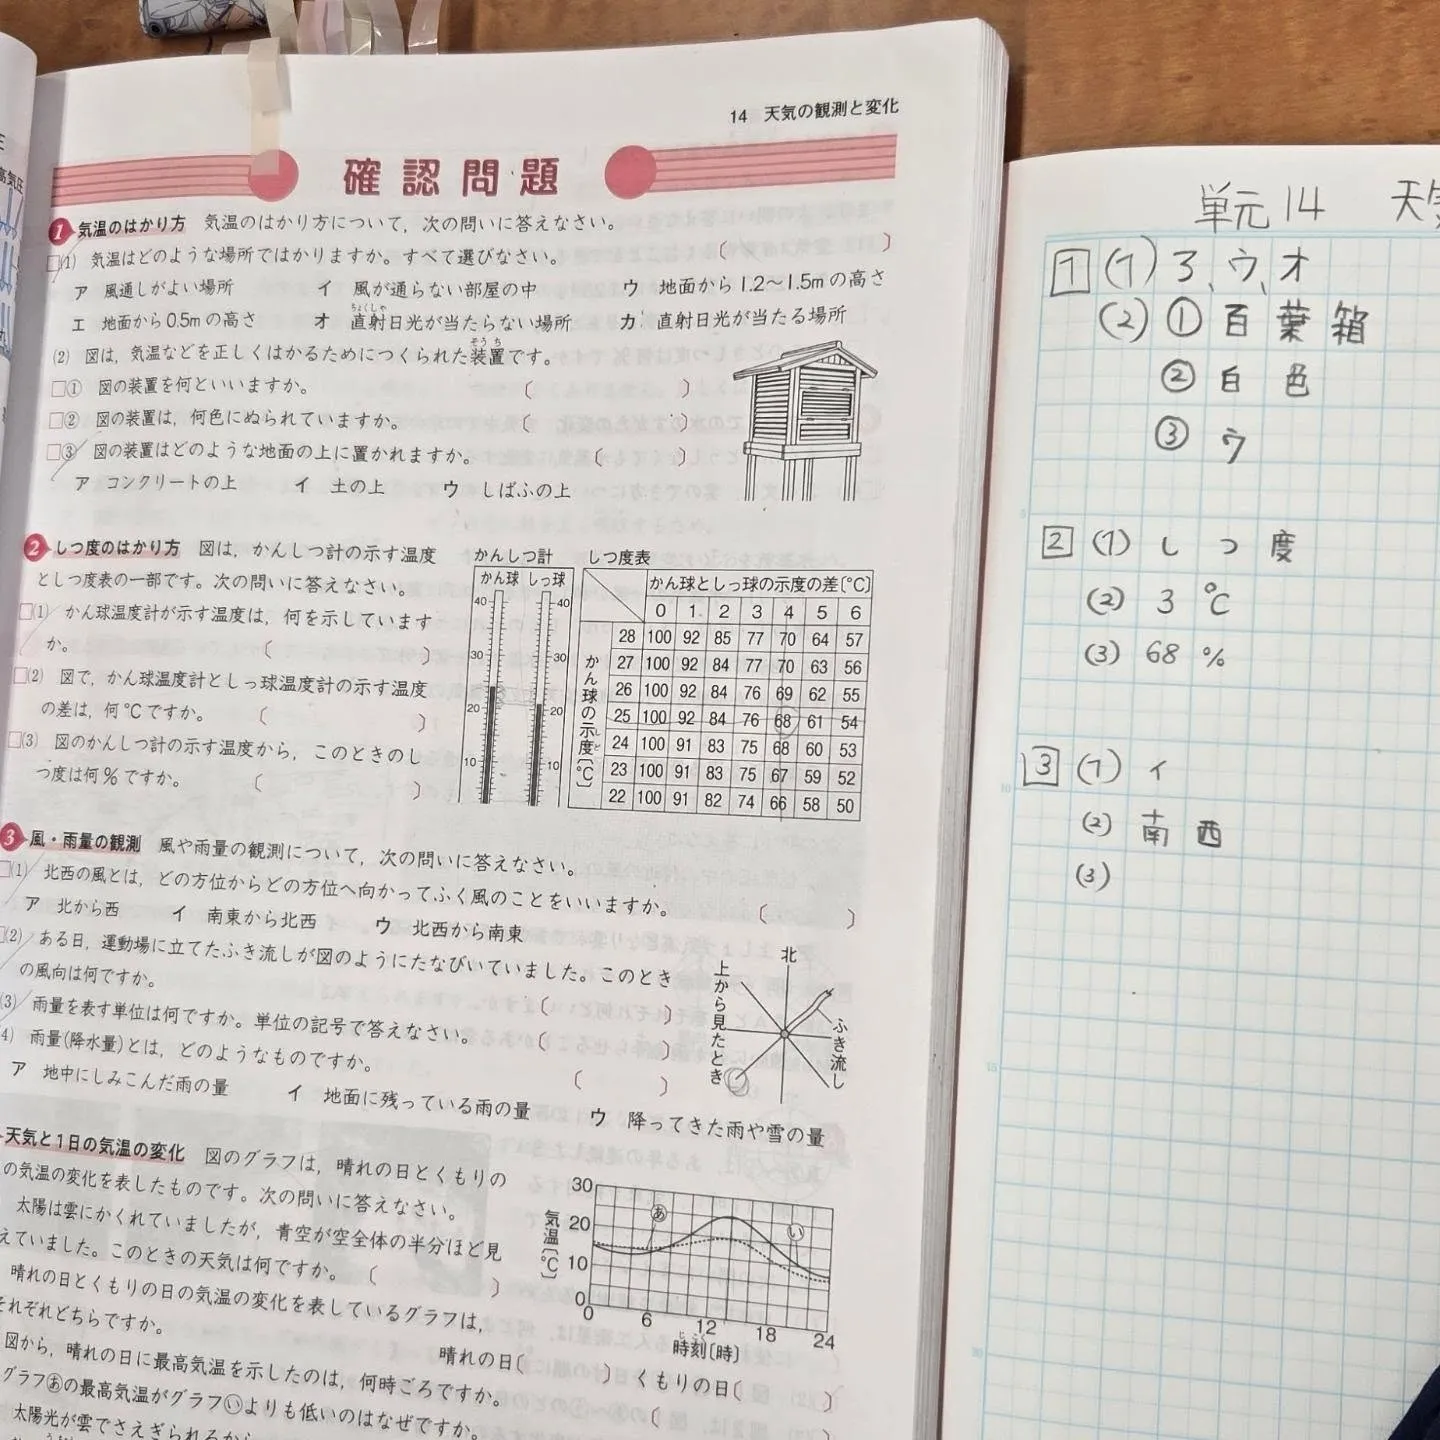 14 天気の観測と変化
確認問題
1 気温のはかり方 気温のはかり方について，次の問いに答えなさい。
□(1) 気温はどのような場所ではかりますか。すべて選びなさい。（　　）
ア 風通しがよい場所 イ 風が通らない部屋の中 ウ 地面から1.2～1.5mの高さ
エ 地面から0.5mの高さ オ 直射日光が当たらない場所 カ 直射日光が当たる場所
ちょくしゃ
(2) 図は，気温などを正しくはかるためにつくられた装置です。
そうち
□① 図の装置を何といいますか。（　　）
□② 図の装置は，何色にぬられていますか。（　　）
□③ 図の装置はどのような地面の上に置かれますか。（　　）
ア コンクリートの上 イ 土の上 ウ しばふの上
2 しつ度のはかり方 図は，かんしつ計の示す温度
としつ度表の一部です。次の問いに答えなさい。
□(1) かん球温度計が示す温度は，何を示しています
か。（　　）
□(2) 図で，かん球温度計としっ球温度計の示す温度
の差は，何℃ですか。（　　）
□(3) 図のかんしつ計の示す温度から，このときのし
つ度は何％ですか。（　　）
かんしつ計
かん球 しっ球
40 40
30 30
20 20
10 10
しつ度表
かん球としっ球の示度の差〔℃〕
0 1 2 3 4 5 6
かん球の示度〔℃〕
しど
28 100 92 85 77 70 64 57
27 100 92 84 77 70 63 56
26 100 92 84 76 69 62 55
25 100 92 84 76 68 61 54
24 100 91 83 75 68 60 53
23 100 91 83 75 67 59 52
22 100 91 82 74 66 58 50
3 風・雨量の観測 風や雨量の観測について，次の問いに答えなさい。
□(1) 北西の風とは，どの方位からどの方位へ向かってふく風のことをいいますか。（　　）
ア 北から西 イ 南東から北西 ウ 北西から南東
□(2) ある日，運動場に立てたふき流しが図のようにたなびいていました。このとき
の風向は何ですか。（　　）
(3) 雨量を表す単位は何ですか。単位の記号で答えなさい。（　　）
4) 雨量(降水量)とは，どのようなものですか。（　　）
ア 地中にしみこんだ雨の量 イ 地面に残っている雨の量 ウ 降ってきた雨や雪の量
北
上から見たとき
ふき流し
天気と1日の気温の変化 図のグラフは，晴れの日とくもりの
の気温の変化を表したものです。次の問いに答えなさい。
太陽は雲にかくれていましたが，青空が空全体の半分ほど見
えていました。このときの天気は何ですか。（　　）
晴れの日とくもりの日の気温の変化を表しているグラフは，
それぞれどちらですか。
晴れの日（　　） くもりの日（　　）
図から，晴れの日に最高気温を示したのは，何時ごろですか。（　　）
グラフあの最高気温がグラフいよりも低いのはなぜですか。
太陽光が雲でさえぎられるから
気温〔℃〕
30
20
10
0
あ い
0 6 12 18 24
時刻〔時〕
じこく
単元14 天気
1 (1) ア、ウ、オ
(2) ①百葉箱
② 白色
③ ウ
2 (1) しつ度
(2) 3℃
(3) 68％
3 (1) イ
(2) 南西
(3)